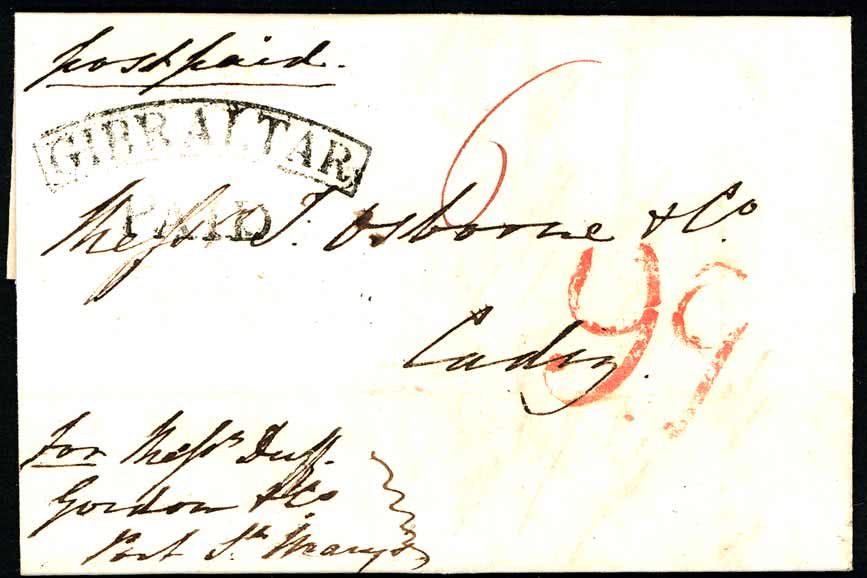 postpaid.
GIBRALTAR
PAID
6
Messrs T. Osborne & Co.
9 9
Cadiz.
for Messrs Duff.
Gordon & Co
Port St. Marys